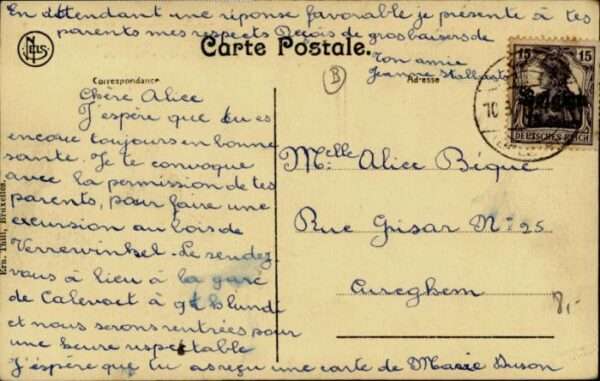 En attendant une réponse favorable je présente à tes
parents mes respects Reçois de gros baisers de
Ton amie
Jeanne
Carte Postale.
Correspondance
Adresse
B
15 15
DEUTSCHES REICH
Chère Alice
J'espère que tu es
encore toujours en bonne
santé. Je te convoque
avec la permission de tes
parents, pour faire une
excursion au bois de
Verrewinkel. Le rendez
vous à lieu à la gare
de Calevoet à lundi
et nous serons rentrées pour
une heure respectable
J'espère que tu as reçu une carte de Marie Duson
Melle Alice Bique
Rue Grisar No 25
Cureghem
8,-
Ern. Thill, Bruxelles.